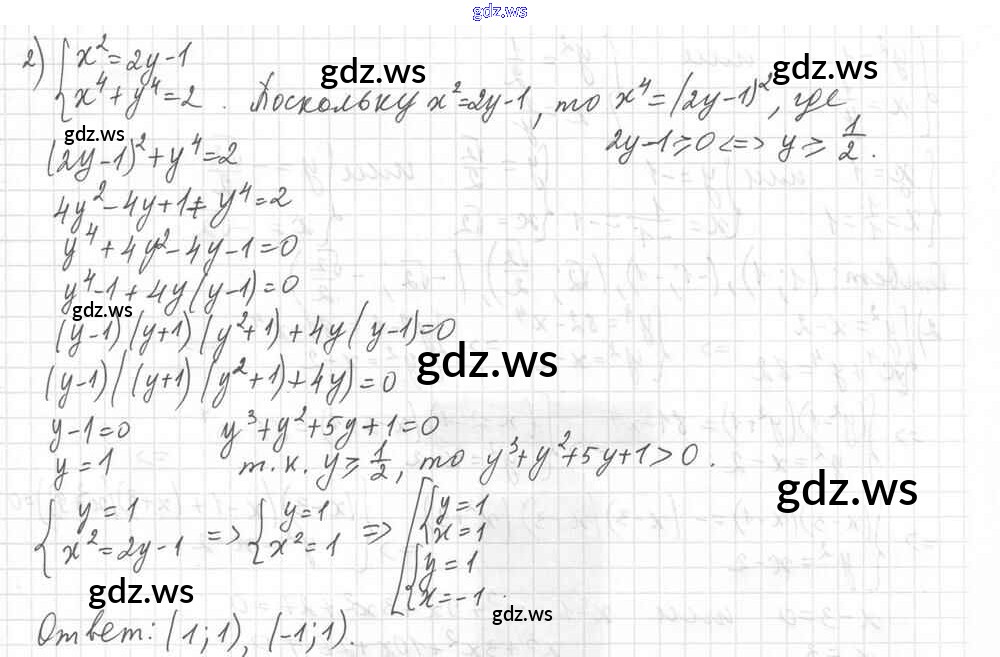 gdz.ws
2) { x² = 2y-1
{ x⁴ + y⁴ = 2 . Поскольку x² = 2y-1, то x⁴ = (2y-1)², где
gdz.ws
gdz.ws
gdz.ws
(2y-1)² + y⁴ = 2
2y-1 ≥ 0 <=> y ≥ 1/2.
4y² - 4y + 1 + y⁴ = 2
y⁴ + 4y² - 4y - 1 = 0
y⁴ - 1 + 4y(y-1) = 0
gdz.ws
(y-1)(y+1)(y²+1) + 4y(y-1) = 0
gdz.ws
(y-1)((y+1)(y²+1) + 4y) = 0
y-1 = 0 y³ + y² + 5y + 1 = 0
y = 1 т.к. y ≥ 1/2, то y³ + y² + 5y + 1 > 0.
gdz.ws
{ y = 1 => { y = 1 => [ { y = 1
{ x² = 2y-1 { x² = 1 { x = 1
{ y = 1
{ x = -1.
gdz.ws
gdz.ws
Ответ: (1; 1), (-1; 1).